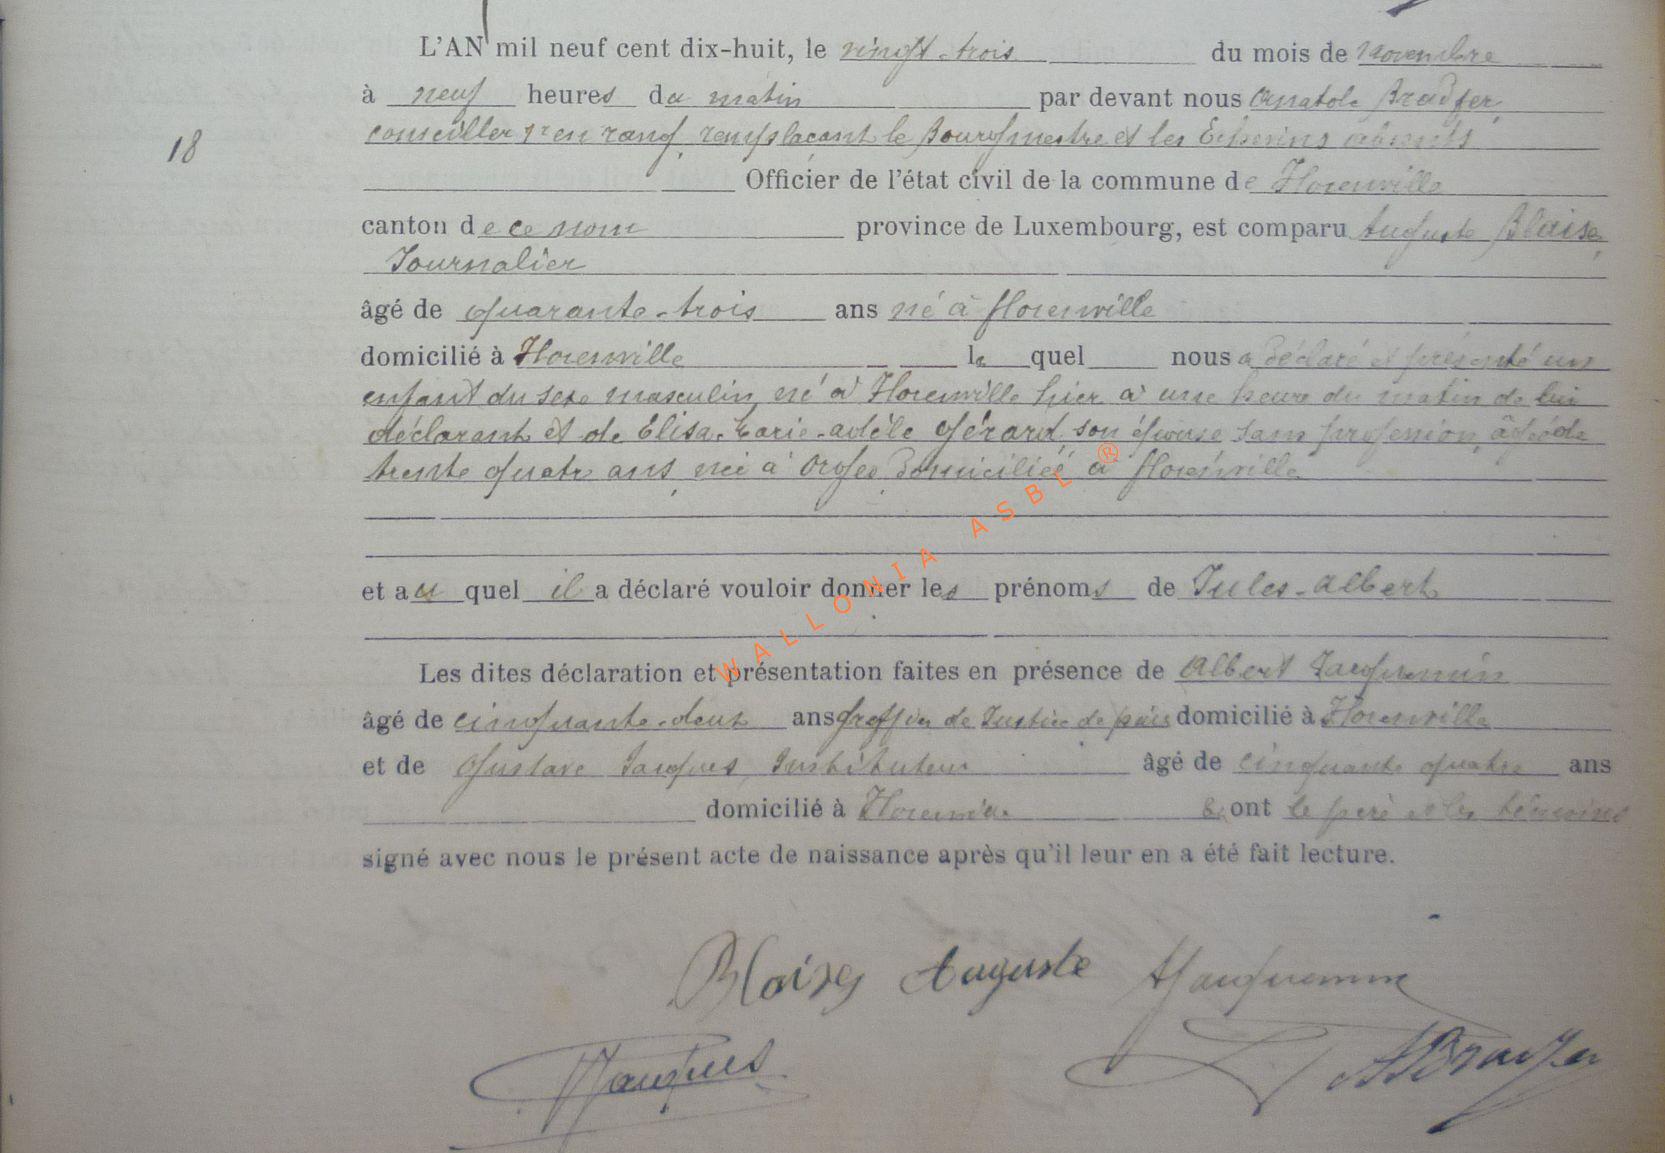 L'AN mil neuf cent dix-huit, le vingt-trois du mois de novembre
à neuf heures du matin par devant nous Anatole Bradfer,
conseiller 1r en rang, remplaçant le Bourgmestre et les Echevins absents
18
Officier de l'état civil de la commune de Florenville
canton de ce nom province de Luxembourg, est comparu Auguste Blaise,
Journalier
âgé de quarante-trois ans né à Florenville
domicilié à Florenville lequel nous a déclaré et présenté un
enfant du sexe masculin, né à Florenville hier à une heure du matin de lui
déclarant et de Elisa-Marie-Adèle Gérard son épouse sans profession, âgée de
trente quatre ans, née à Orgeo domiciliée à Florenville
et auquel il a déclaré vouloir donner les prénoms de Jules-Albert
Les dites déclaration et présentation faites en présence de Albert Jacquemin
âgé de cinquante-deux ans greffier de Justice de paix domicilié à Florenville
et de Gustave Jacques, Instituteur âgé de cinquante quatre ans
domicilié à Florenville & ont le père et les témoins
signé avec nous le présent acte de naissance après qu'il leur en a été fait lecture.
Blaise Auguste AJacquemin
GJacques ABradfer
WALLONIA ASBL ®